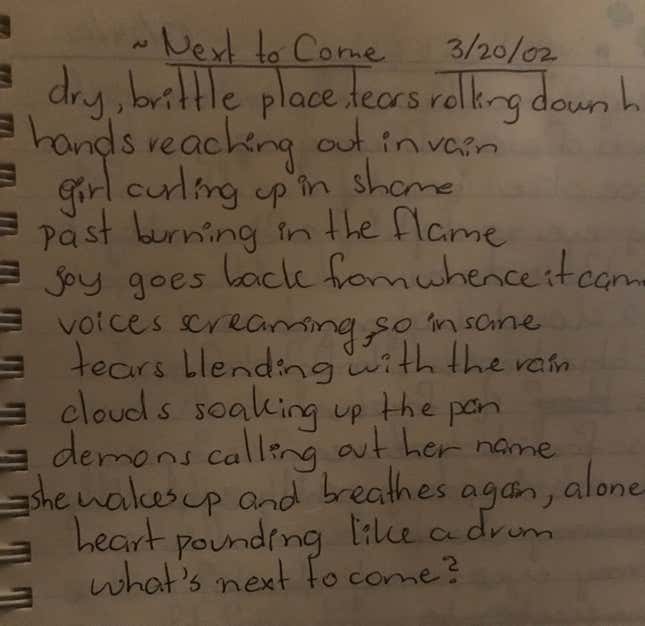 ~ Next to Come 3/20/02
dry, brittle place, tears rolling down h
hands reaching out in vain
girl curling up in shame
past burning in the flame
joy goes back from whence it cam
voices screaming, so insane
tears blending with the rain
clouds soaking up the pan
demons calling out her name
she wakes up and breathes again, alone
heart pounding like a drum
what's next to come?